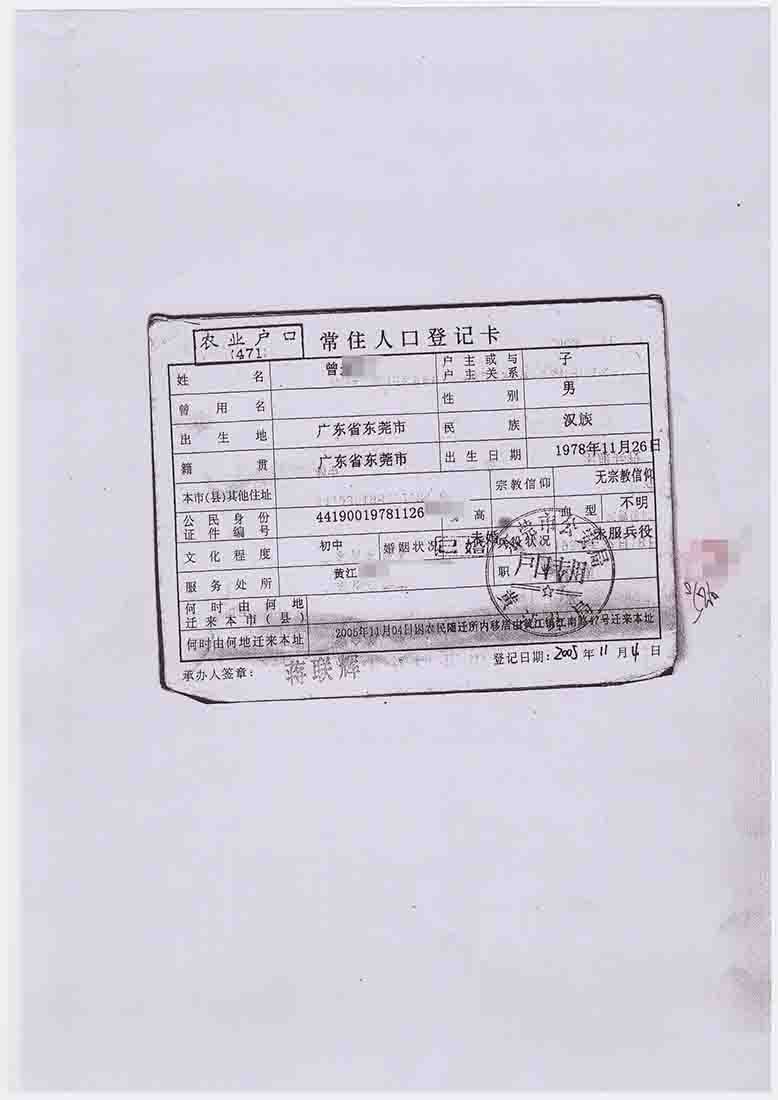 农业户口 常住人口登记卡
(471)
姓名 曾 户主或与户主关系 子
曾用名 性别 男
出生地 广东省东莞市 民族 汉族
籍贯 广东省东莞市 出生日期 1978年11月26日
本市(县)其他住址 宗教信仰 无宗教信仰
公民身份证件编号 44190019781126 高 血型 不明
文化程度 初中 婚姻状况 未婚 已婚 兵役状况 未服兵役
服务处所 黄江 职
何时由何地迁来本市(县)
何时由何地迁来本址 2005年11月04日因农民随迁所内移居由黄江镇江南路47号迁来本址
承办人签章: 蒋联辉 登记日期: 2005年11月4日
户口专用